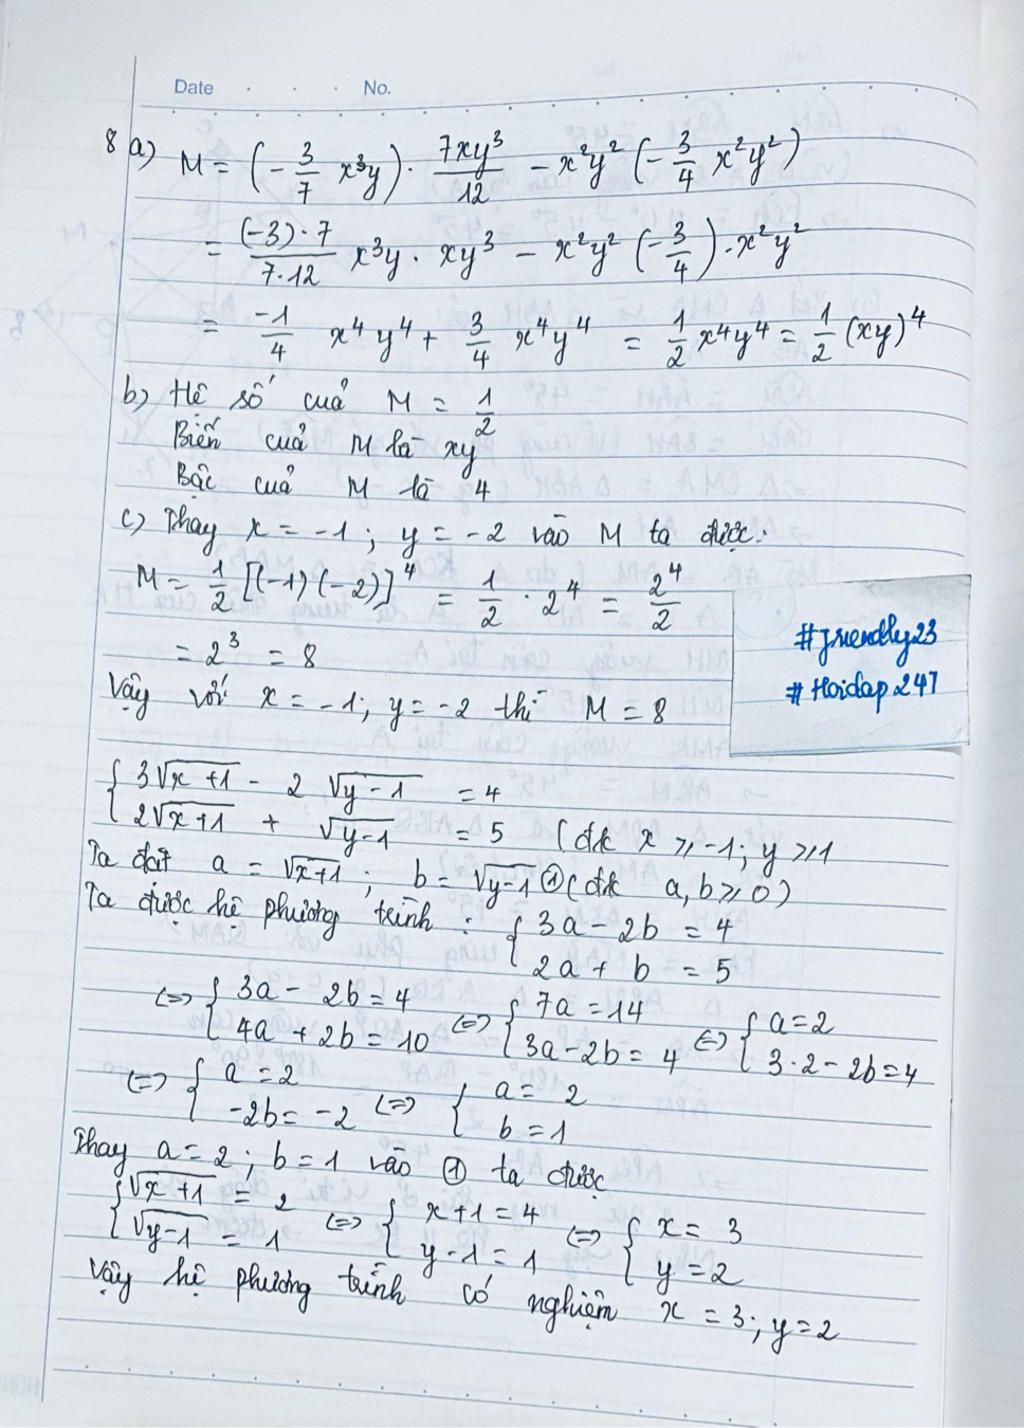 Date . . . No.
8 a) M = (-3/7 x³y) · 7xy³/12 - x²y² (-3/4 x²y²)
= (-3)·7/7·12 x³y · xy³ - x²y² (-3/4) · x²y²
= -1/4 x⁴y⁴ + 3/4 x⁴y⁴ = 1/2 x⁴y⁴ = 1/2 (xy)⁴
b) Hệ số của M = 1/2
Biến của M là xy
Bậc của M là 4
c) Thay x = -1 ; y = -2 vào M ta được:
M = 1/2 [(-1)(-2)]⁴ = 1/2 · 2⁴ = 2⁴/2
= 2³ = 8
#friendly23
#Hoidap247
Vậy với x = -1; y = -2 thì M = 8
{ 3√x+1 - 2 √y-1 = 4
2√x+1 + √y-1 = 5 (đk x ≥ -1; y ≥ 1
Ta đặt a = √x+1 ; b = √y-1 ① (đk a,b ≥ 0)
Ta được hệ phương trình : { 3a - 2b = 4
2a + b = 5
<=> { 3a - 2b = 4 <=> { 7a = 14 <=> { a = 2
4a + 2b = 10 3a - 2b = 4 3·2 - 2b = 4
<=> { a = 2 <=> { a = 2
-2b = -2 b = 1
Thay a = 2 ; b = 1 vào ① ta được
{ √x+1 = 2 <=> { x+1 = 4 <=> { x = 3
√y-1 = 1 y-1 = 1 y = 2
Vậy hệ phương trình có nghiệm x = 3; y = 2